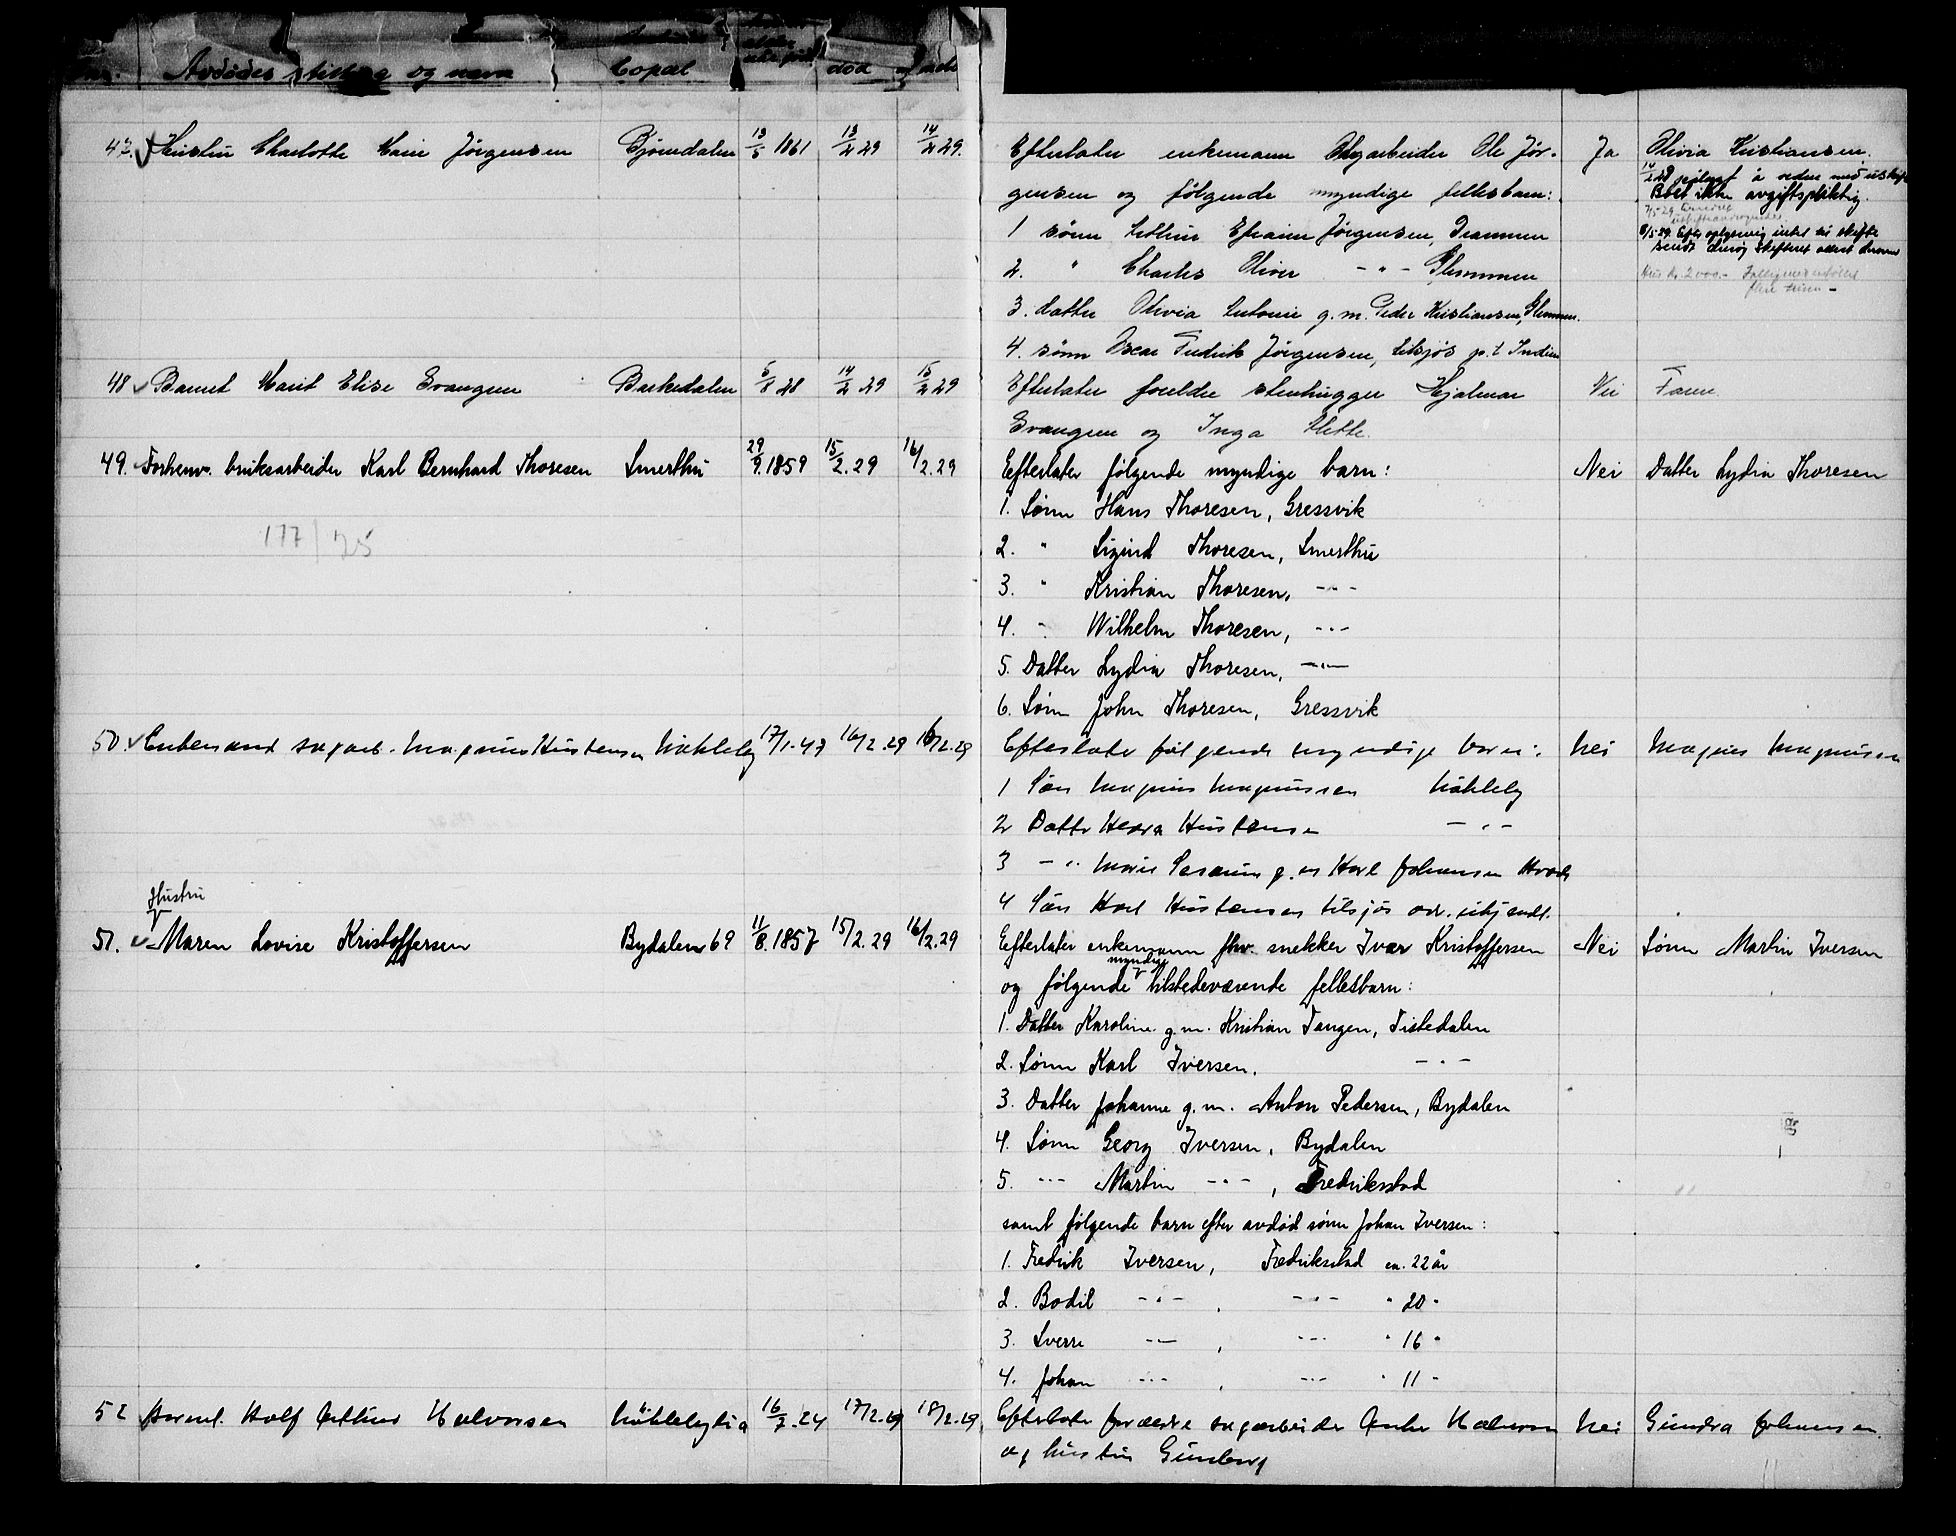 Avdødes stilling og navn Bopæl død
47. Hustru Charlotte Marie Jørgensen Bjørndalen 13/5 1861 13/2 29 14/2 29.
Efterlater enkemann Ole Jør-
gensen og følgende myndige fellesbarn:
1 sønn Arthur Efraim Jørgensen, Drammen
2. " Charles Oliver - " - Glemmen
3. datter Olivia Antonie g.m. Peder Kristiansen, Glemmen.
4. sønn Oscar Fredrik Jørgensen, tilsjøs p.t. Indien
Ja Olivia Kristiansen.
14/2 29 pålagt å sedne med
Boet ikke avgiftspliktig.
48 Barnet Marit Elise Evangren Buskedalen 5/8 28 14/2 29 15/2 29
Efterlater foreldre stenhugger Hjalmar
Evangren og Inga Mette.
Nei Faren.
49. Forhenv. bruksarbeider Karl Bernhard Thoresen Smerthu 29/9.1859 15/2.29 16/2.29
177/25
Efterlater følgende myndige barn:
1. Sønn Hans Thoresen, Gressvik
2. " Sigurd Thoresen, Smerthu
3. " Kristian Thoresen, - " -
4. " Wilhelm Thoresen, - " -
5. Datter Lydia Thoresen, - " -
6. Sønn John Thoresen, Gressvik
Nei Datter Lydia Thoresen
50. Enkemand sagarb. Magnus Kristensen Nøkleby 17/1.47 16/2.29 16/2.29
Efterlater følgende myndige barn:
1 Søn Magnus Magnussen Nøkleby
2 Datter Kristensen - " -
3 - " - g.m. Karl Johansen
4 Søn Karl Kristensen tilsjøs adr. ukjendt.
Nei Magnus Magnussen
Hustru
51. Maren Lovise Kristoffersen Bydalen 69 11/8.1857 15/2.29 16/2.29
Efterlater enkemann fhv. snekker Ivar Kristoffersen
myndige
og følgende tilstedeværende fellesbarn:
1. Datter Karoline g.m. Kristian Tangen, Tistedalen
2. Sønn Karl Iversen. - " -
3. Datter Johanne g.m. Anton Pedersen, Bydalen
4. Sønn Georg Iversen, Bydalen
5. - " - Martin - " -, Fredrikstad
samt følgende barn efter avdød sønn Johan Iversen:
1. Fredrik Iversen, Fredrikstad ca. 22 år
2. Bodil - " - , - " - " 20 "
3. Sverre - " - , - " - " 16 "
4. Johan - " - , - " - " 11 "
Nei Sønn Martin Iversen
52 Barnet Rolf Arthur Halvorsen Nøklebylia 16/7.24 17/2.29 18/2.29
Efterlater forældre sagarbeider Halvorsen
og hustru Gunborg
Nei Gundra Johansen.